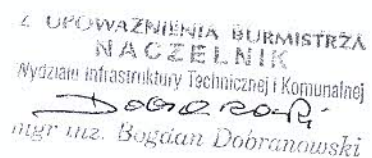 Z UPOWAŻNIENIA BURMISTRZA
NACZELNIK
Wydziału Infrastruktury Technicznej i Komunalnej
mgr inż. Bogdan Dobranowski